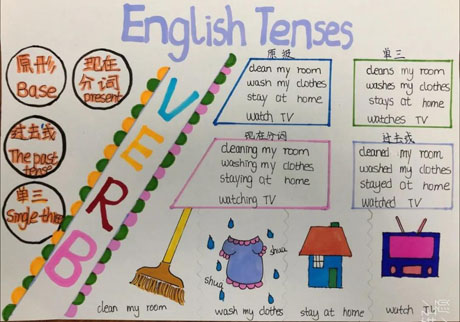 English Tenses
原形
Base
现在
分词
present
过去式
The past
tense
单三
Single-third
VERB
原级
clean my room
wash my clothes
stay at home
watch TV
单三
cleans my room
washes my clothes
stays at home
watches TV
现在分词
cleaning my room
washing my clothes
staying at home
watching TV
过去式
cleaned my room
washed my clothes
stayed at home
watched TV
shua
shua
clean my room
wash my clothes
stay at home
watch TV